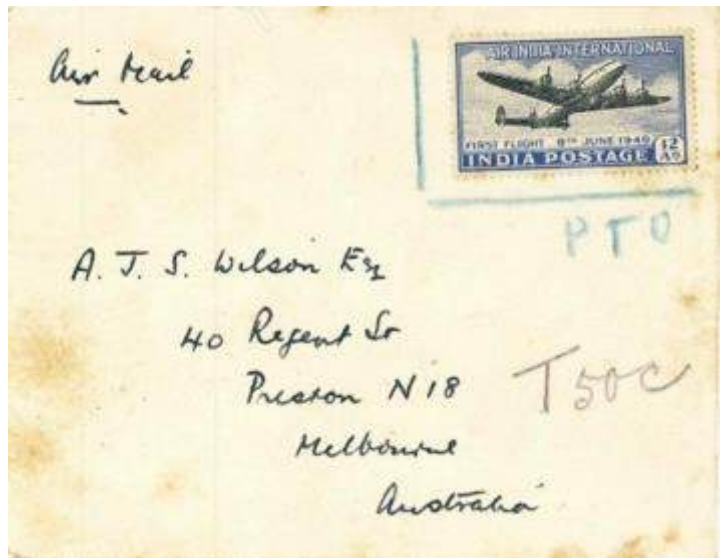 Air Mail
AIR INDIA INTERNATIONAL
FIRST FLIGHT 8TH JUNE 1948
INDIA POSTAGE
12
AS
PTO
A. J. S. Wilson Esq
40 Regent St
Preston N 18
T 50 C
Melbourne
Australia